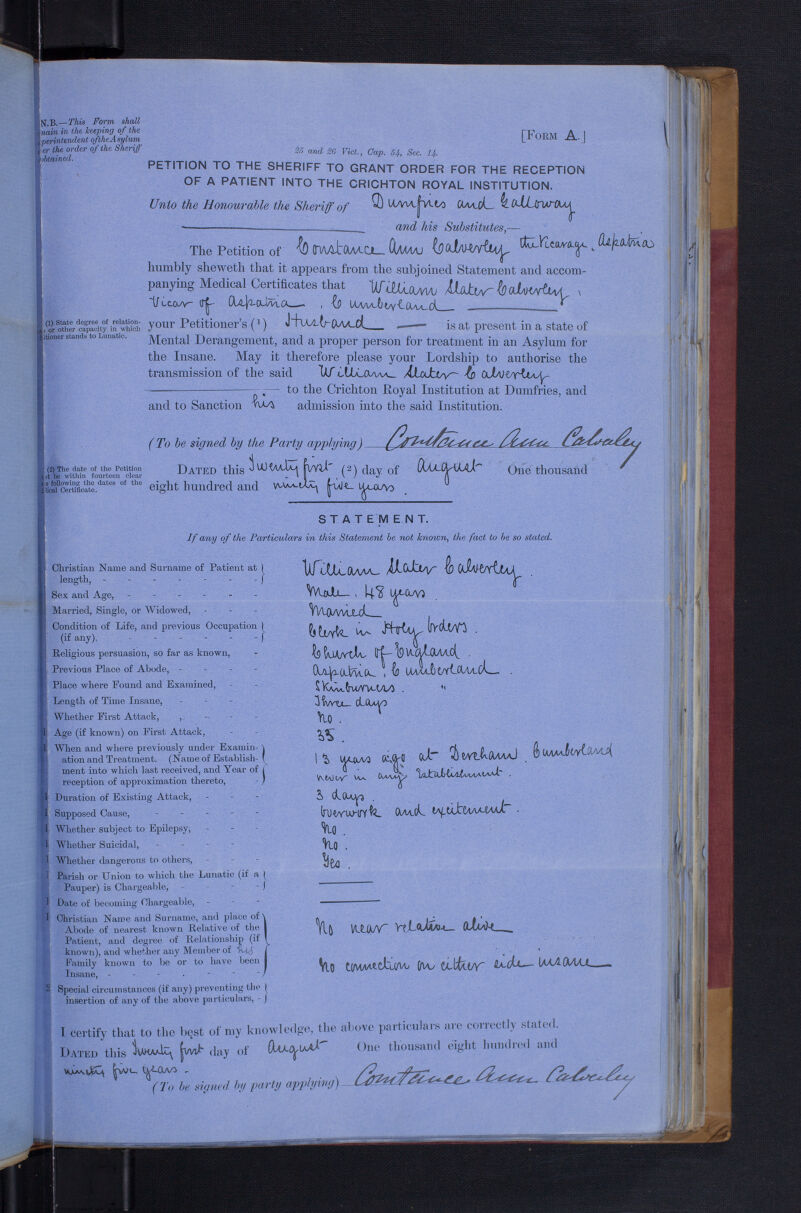 N.B.—This Form shall
main in the keeping of the
perintendent of the Asylum
er the order of the Sheriff
obtained.
[FORM A.]
25 and 26 Vict., Cap. 54, Sec. 14.
PETITION TO THE SHERIFF TO GRANT ORDER FOR THE RECEPTION
OF A PATIENT INTO THE CRICHTON ROYAL INSTITUTION.
Unto the Honourable the Sheriff of Dumfries and Galloway
and his Substitutes,—
The Petition of Constance Ann Calverley the Vicarage, Aspatria
humbly sheweth that it appears from the subjoined Statement and accom-
panying Medical Certificates that William Slater Calverley,
Vicar of Aspatria, Cumberland
(1) State degree of relation-
, or other capacity in which
itioner stands to Lunatic.
your Petitioner's (1) Husband is at present in a state of
Mental Derangement, and a proper person for treatment in an Asylum for
the Insane. May it therefore please your Lordship to authorise the
transmission of the said William Slater Calverley
to the Crichton Royal Institution at Dumfries, and
and to Sanction his admission into the said Institution.
(To be signed by the Party applying) Constance Ann Calverley
(2) The date of the Petition
st be within fourteen clear
s following the dates of the
ical Certificate.
DATED this Twenty first (2) day of August One thousand
eight hundred and ninety five years.
STATEMENT.
If any of the Particulars in this Statement be not known, the fact to be so stated.
Christian Name and Surname of Patient at
length, - William Slater Calverley.
Sex and Age, - Male. 48 years.
Married, Single, or Widowed, - Married
Condition of Life, and previous Occupation
(if any). - Clerk in Holy Orders.
Religious persuasion, so far as known, - Church of England.
Previous Place of Abode, - Aspatria, Cumberland.
Place where Found and Examined, - Skinburness. "
Length of Time Insane, - Three days
Whether First Attack, - No.
Age (if known) on First Attack, - 35.
When and where previously under Examin-
ation and Treatment. (Name of Establish-
ment into which last received, and Year of
reception of approximation thereto, 13 years ago at Dereham, Cumberland
never in any Establishment.
Duration of Existing Attack, - 3 days.
Supposed Cause, - Overwork and excitement.
Whether subject to Epilepsy, - No.
Whether Suicidal, - No.
Whether dangerous to others, - Yes.
Parish or Union to which the Lunatic (if a
Pauper) is Chargeable, -
Date of becoming Chargeable, -
Christian Name and Surname, and place of
Abode of nearest known Relative of the
Patient, and degree of Relationship (if
known), and whether any Member of his
Family known to be or to have been
Insane, - No near relative alive
No connection on either side insane
Special circumstances (if any) preventing the
insertion of any of the above particulars, -
I certify that to the best of my knowledge, the above particulars are correctly stated.
DATED this Twenty first day of August One thousand eight hundred and
ninety five years.
(To be signed by party applying) Constance Ann Calverley